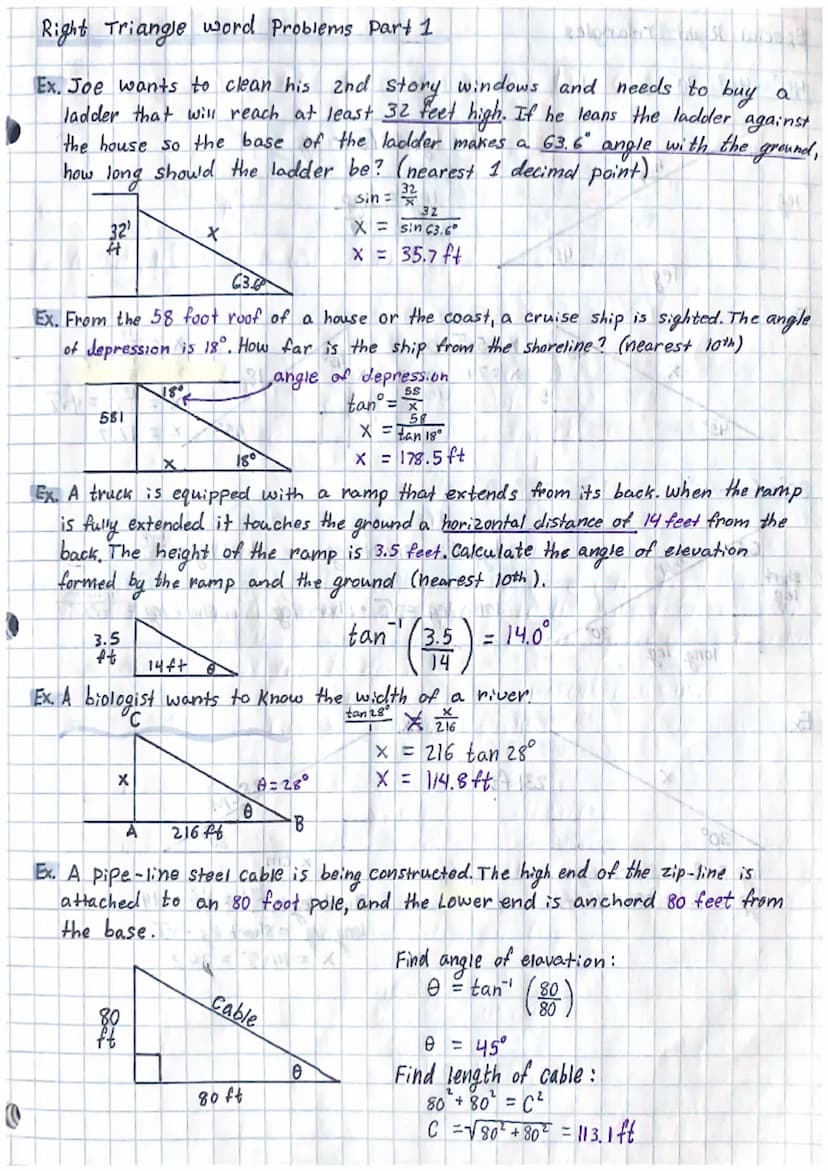 Right Triangle word Problems Part 1
Ex. Joe wants to clean his 2nd story windows and needs to buy a
ladder that will reach at least 32 feet high. If he leans the ladder against
the house so the base of the ladder makes a 63.6° angle with the ground,
how long should the ladder be? (nearest 1 decimal point)
sin = 32/x
x = 32/sin 63.6°
x = 35.7 ft
32'
ft
x
63.6°
Ex. From the 58 foot roof of a house or the coast, a cruise ship is sighted. The angle
of depression is 18°. How far is the ship from the shoreline? (nearest 10th)
angle of depression
18°
58'
x
18°
tan° = 58/x
x = 58/tan 18°
x = 178.5 ft
Ex. A truck is equipped with a ramp that extends from its back. When the ramp
is fully extended it touches the ground a horizontal distance of 14 feet from the
back. The height of the ramp is 3.5 feet. Calculate the angle of elevation
formed by the ramp and the ground (nearest 10th).
3.5
ft
14ft
θ
tan⁻¹ (3.5/14) = 14.0°
Ex. A biologist wants to know the width of a river.
C
x
A
216 ft
θ = 28°
θ
B
tan 28°/1 x/216
x = 216 tan 28°
x = 114.8 ft
Ex. A pipe-line steel cable is being constructed. The high end of the zip-line is
attached to an 80 foot pole, and the Lower end is anchord 80 feet from
the base.
80
ft
Cable
θ
80 ft
Find angle of elavation:
θ = tan⁻¹ (80/80)
θ = 45°
Find length of cable:
80² + 80² = C²
C = √80² + 80² = 113.1 ft